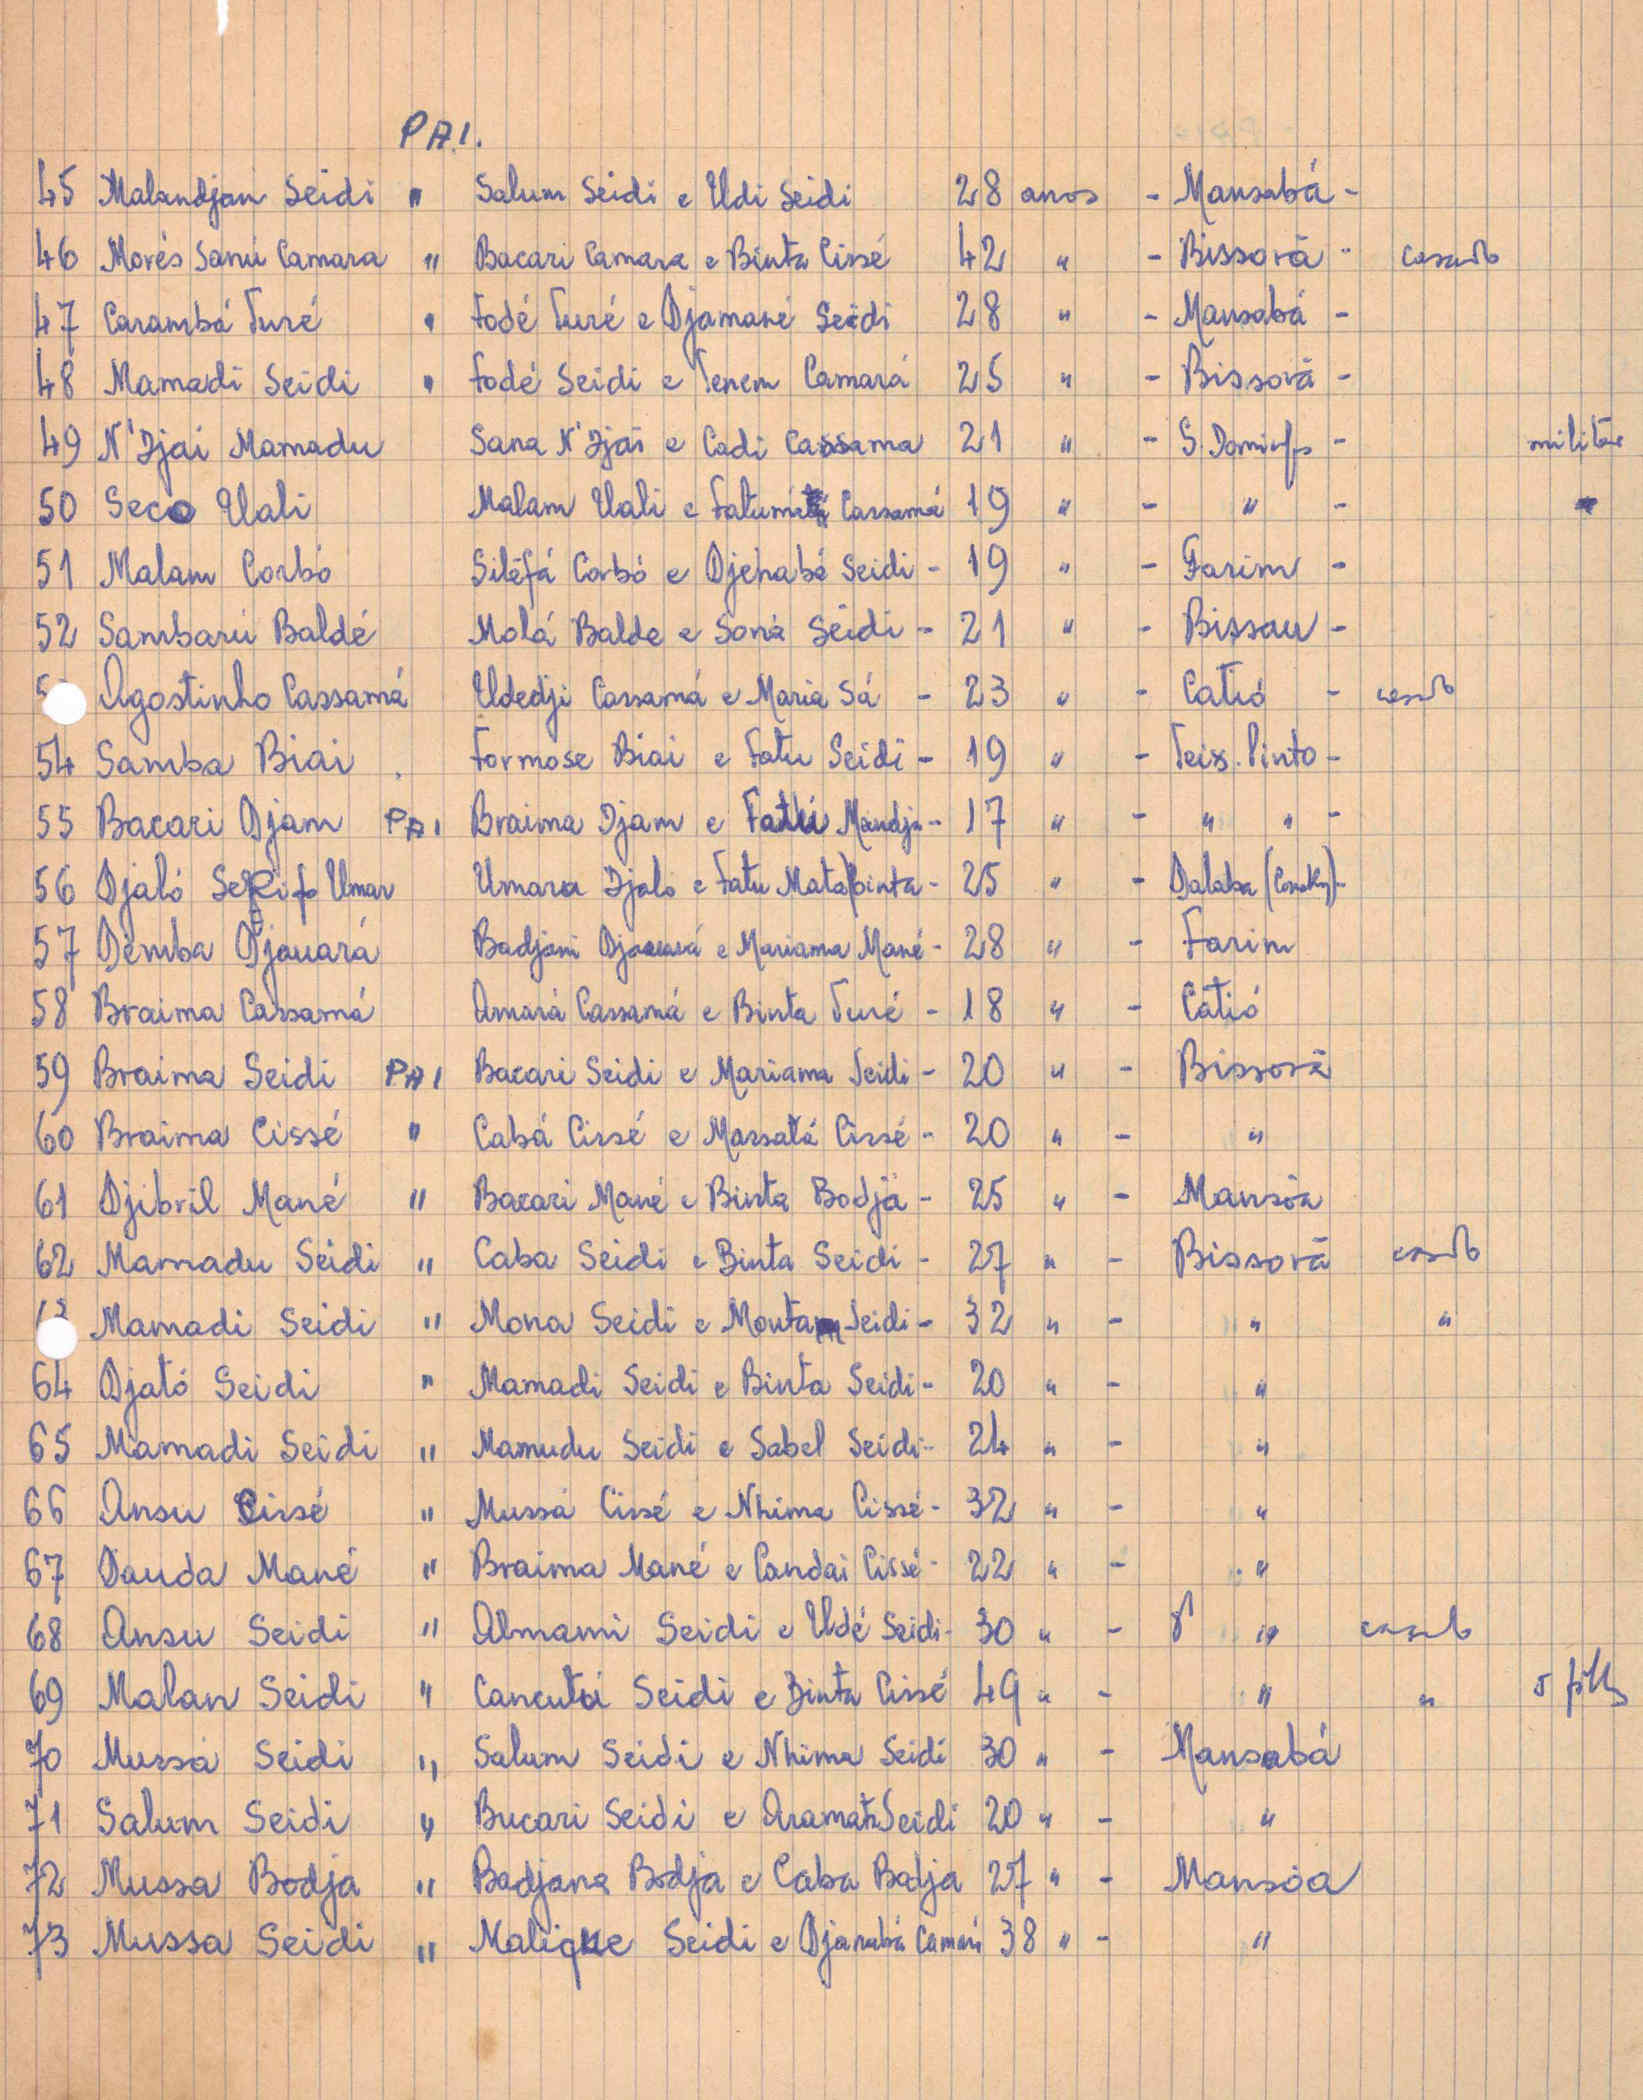 PAI.
45 Malandjan Seidi " Salum Seidi e Udi Seidi 28 anos - Mansabá -
46 Morés Sanú Camara " Bacari Camara e Binta Cissé 42 " - Bissorã - casado
47 Carambá Turé " Fodé Turé e Djamané Seidi 28 " - Mansabá -
48 Mamadi Seidi " Fodé Seidi e Tenem Camará 25 " - Bissorã -
49 N'Djai Mamadu Sana N'Djai e Cadi Cassama 21 " - S. Domingos - militar
50 Seco Uali Malam Uali e Cassamá 19 " - " - "
51 Malam Corbó Siléfá Corbó e Djenabá Seidi - 19 " - Farim -
52 Sambarú Baldé Molá Balde e Soná Seidi - 21 " - Bissau -
Agostinho Cassamá Udedji Cassamá e Maria Sá - 23 " - Catió - casado
54 Samba Biai Formose Biai e Fatu Seidi - 19 " - Teix. Pinto -
55 Bacari Djam PAI Braima Djam e Fatú Mandja - 17 " - " " -
56 Djaló Umar Umara Djalo e Fatu Matabinta - 25 " - Dalaba (Conakry) -
57 Demba Djauará Badjani Djauará e Mariama Mané - 28 " - Farim
58 Braima Cassamá Amará Cassamá e Binta Turé - 18 " - Catió
59 Braima Seidi PAI Bacari Seidi e Mariama Seidi - 20 " - Bissorã
60 Braima Cissé " Cabá Cissé e Massatá Cissé - 20 " - "
61 Djibril Mané " Bacari Mané e Binta Bodjã - 25 " - Mansôa
62 Mamadu Seidi " Caba Seidi e Binta Seidi - 27 " - Bissorã casado
Mamadi Seidi " Mona Seidi e Seidi - 32 " - " "
64 Djató Seidi " Mamadi Seidi e Binta Seidi - 20 " - "
65 Mamadi Seidi " Mamudu Seidi e Sabel Seidi - 24 " - "
66 Ansu Cissé " Mussá Cissé e Nhima Cissé - 32 " - "
67 Dauda Mané " Braima Mané e Candai Cissé - 22 " - "
68 Ansu Seidi " Almami Seidi e Udé Seidi - 30 " - " casado
69 Malan Seidi " Cancutái Seidi e Binta Cissé 49 " - " " 5 filhos
70 Mussá Seidi " Salum Seidi e Nhima Seidi 30 " - Mansabá
71 Salum Seidi " Bucari Seidi e Aramata Seidi 20 " - "
72 Mussa Bodja " Badjana Bodja e Caba Badja 27 " - Mansôa
73 Mussa Seidi " Malique Seidi e Djanabá Camará 38 " - "